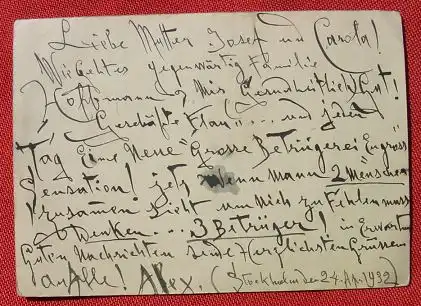 Liebe Mutter Josef und Carola!
Wie geht es gegenwärtig Familie
Hoffmann? Mus Gesundheitlich Gut!
Geschäfte Flau"... und jeden
Tag Eine Neue Grosse Betrügerei Engross
Sensation! jetz wenn Mann 2 Menschen
zusamen sieht um nich zu Fehlen muss
denken... 3 Betrüger! in Erwartung
Guten Nachrichten seine Herzlichsten Grüssen
an Alle! Alex. (Stockholm den 24. Apr. 1932)